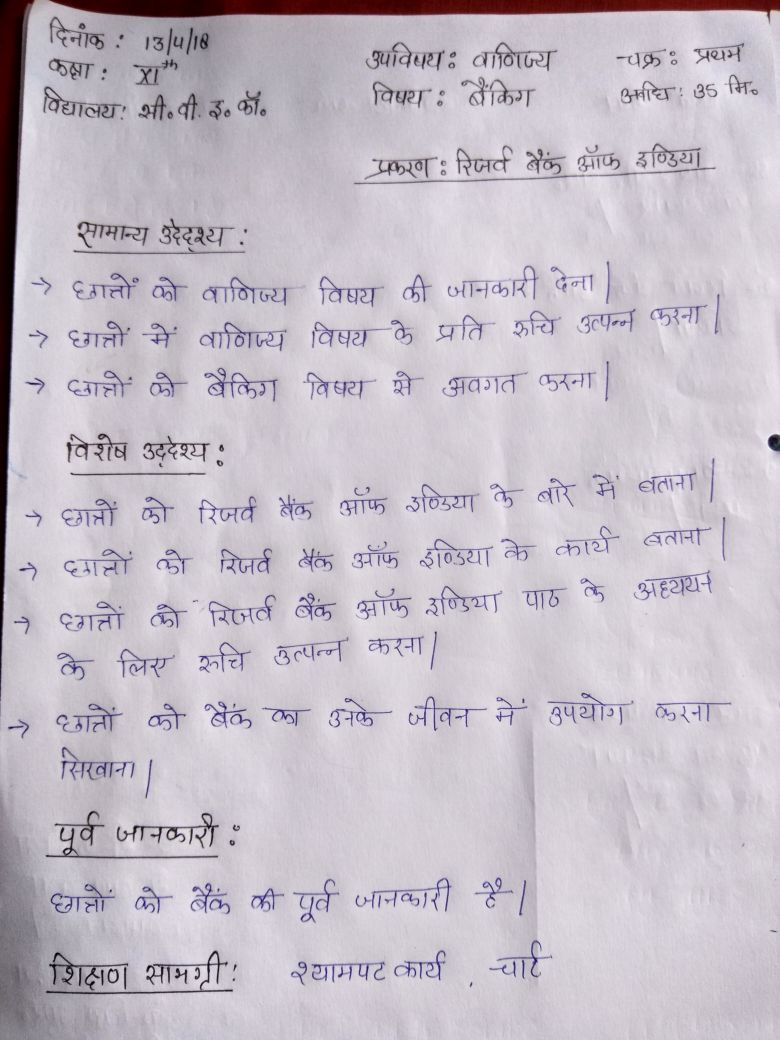 दिनांक : 13/4/18
कक्षा : XIth
विद्यालय: सी॰ वी॰ इ॰ कॉ॰
उपविषय : वाणिज्य चक्र : प्रथम
विषय : बैंकिग अवधि : 35 मि॰
प्रकरण : रिजर्व बैंक ऑफ इण्डिया
सामान्य उद्देश्य :
→ छात्रों को वाणिज्य विषय की जानकारी देना |
→ छात्रों में वाणिज्य विषय के प्रति रुचि उत्पन्न करना |
→ छात्रों को बैकिग विषय से अवगत करना |
विशेष उद्देश्य :
→ छात्रों को रिजर्व बैंक ऑफ इण्डिया के बारे में बताना |
→ छात्रों को रिजर्व बैंक ऑफ इण्डिया के कार्य बताना |
→ छात्रों को रिजर्व बैंक ऑफ इण्डिया पाठ के अध्ययन
के लिए रुचि उत्पन्न करना |
→ छात्रों को बैंक का उनके जीवन में उपयोग करना
सिखाना |
पूर्व जानकारी :
छात्रों को बैंक की पूर्व जानकारी है |
शिक्षण सामग्री : श्यामपट कार्य , चार्ट